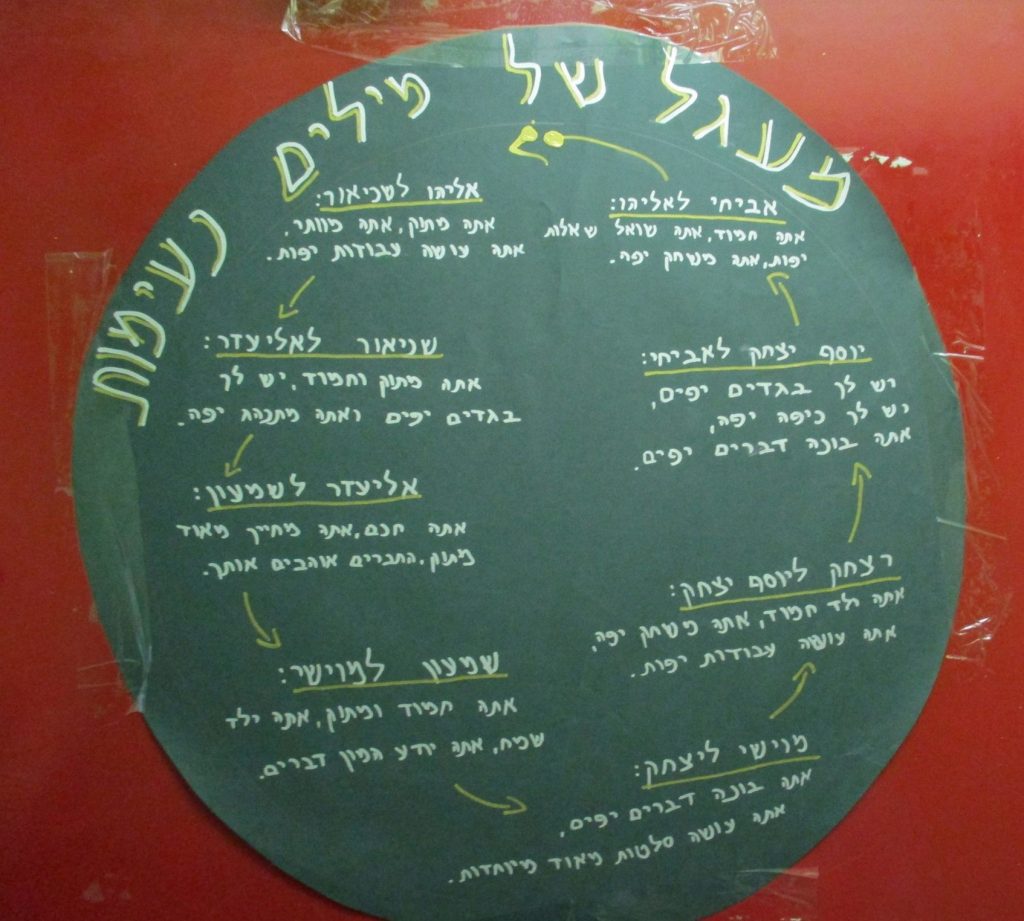 מעגל של מילים נעימות
אליהו לשניאור:
אתה מתוק, אתה מוותר,
אתה עושה עבודות יפות.
שניאור לאליעזר:
אתה מתוק וחמוד, יש לך
בגדים יפים ואתה מתנהג יפה.
אליעזר לשמעון:
אתה חכם, אתה מחייך מאוד
מתוק, החברים אוהבים אותך.
שמעון למוישי:
אתה חמוד ומתוק, אתה ילד
שמח, אתה יודע המון דברים.
מוישי ליצחק:
אתה בונה דברים יפים,
אתה עושה סלטות מאוד מיוחדות.
יצחק ליוסף יצחק:
אתה ילד חמוד, אתה משחק יפה,
אתה עושה עבודות יפות.
יוסף יצחק לאביחי:
יש לך בגדים יפים,
יש לך כיפה יפה,
אתה בונה דברים יפים.
אביחי לאליהו:
אתה חמוד, אתה שואל שאלות
יפות, אתה משחק יפה.